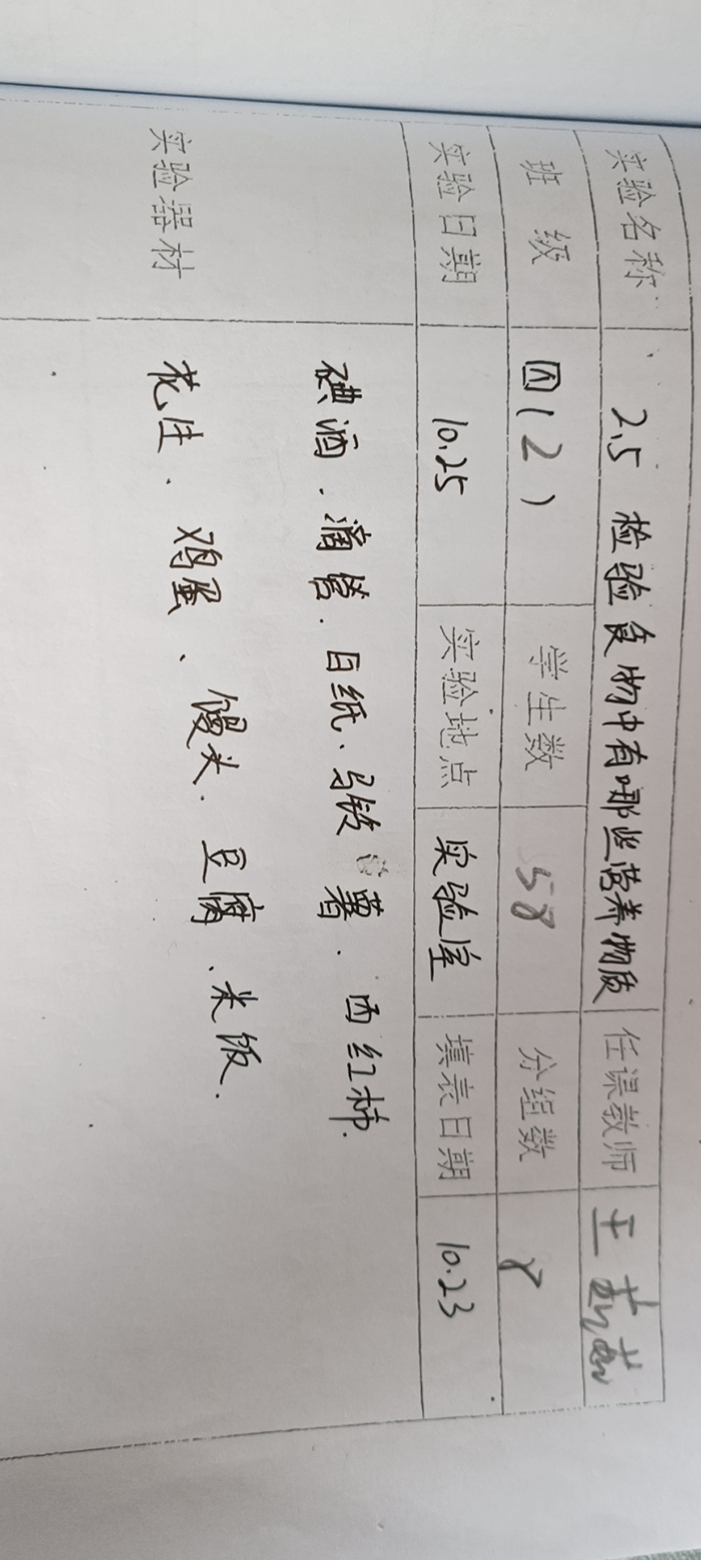 实验名称 2.5 检验食物中有哪些营养物质 任课教师 王
班级 四(2) 学生数 58 分组数 8
实验日期 10.25 实验地点 实验室 填表日期 10.23
碘酒、滴管、白纸、马铃薯、西红柿.
实验器材
花生、鸡蛋、馒头、豆腐、米饭.